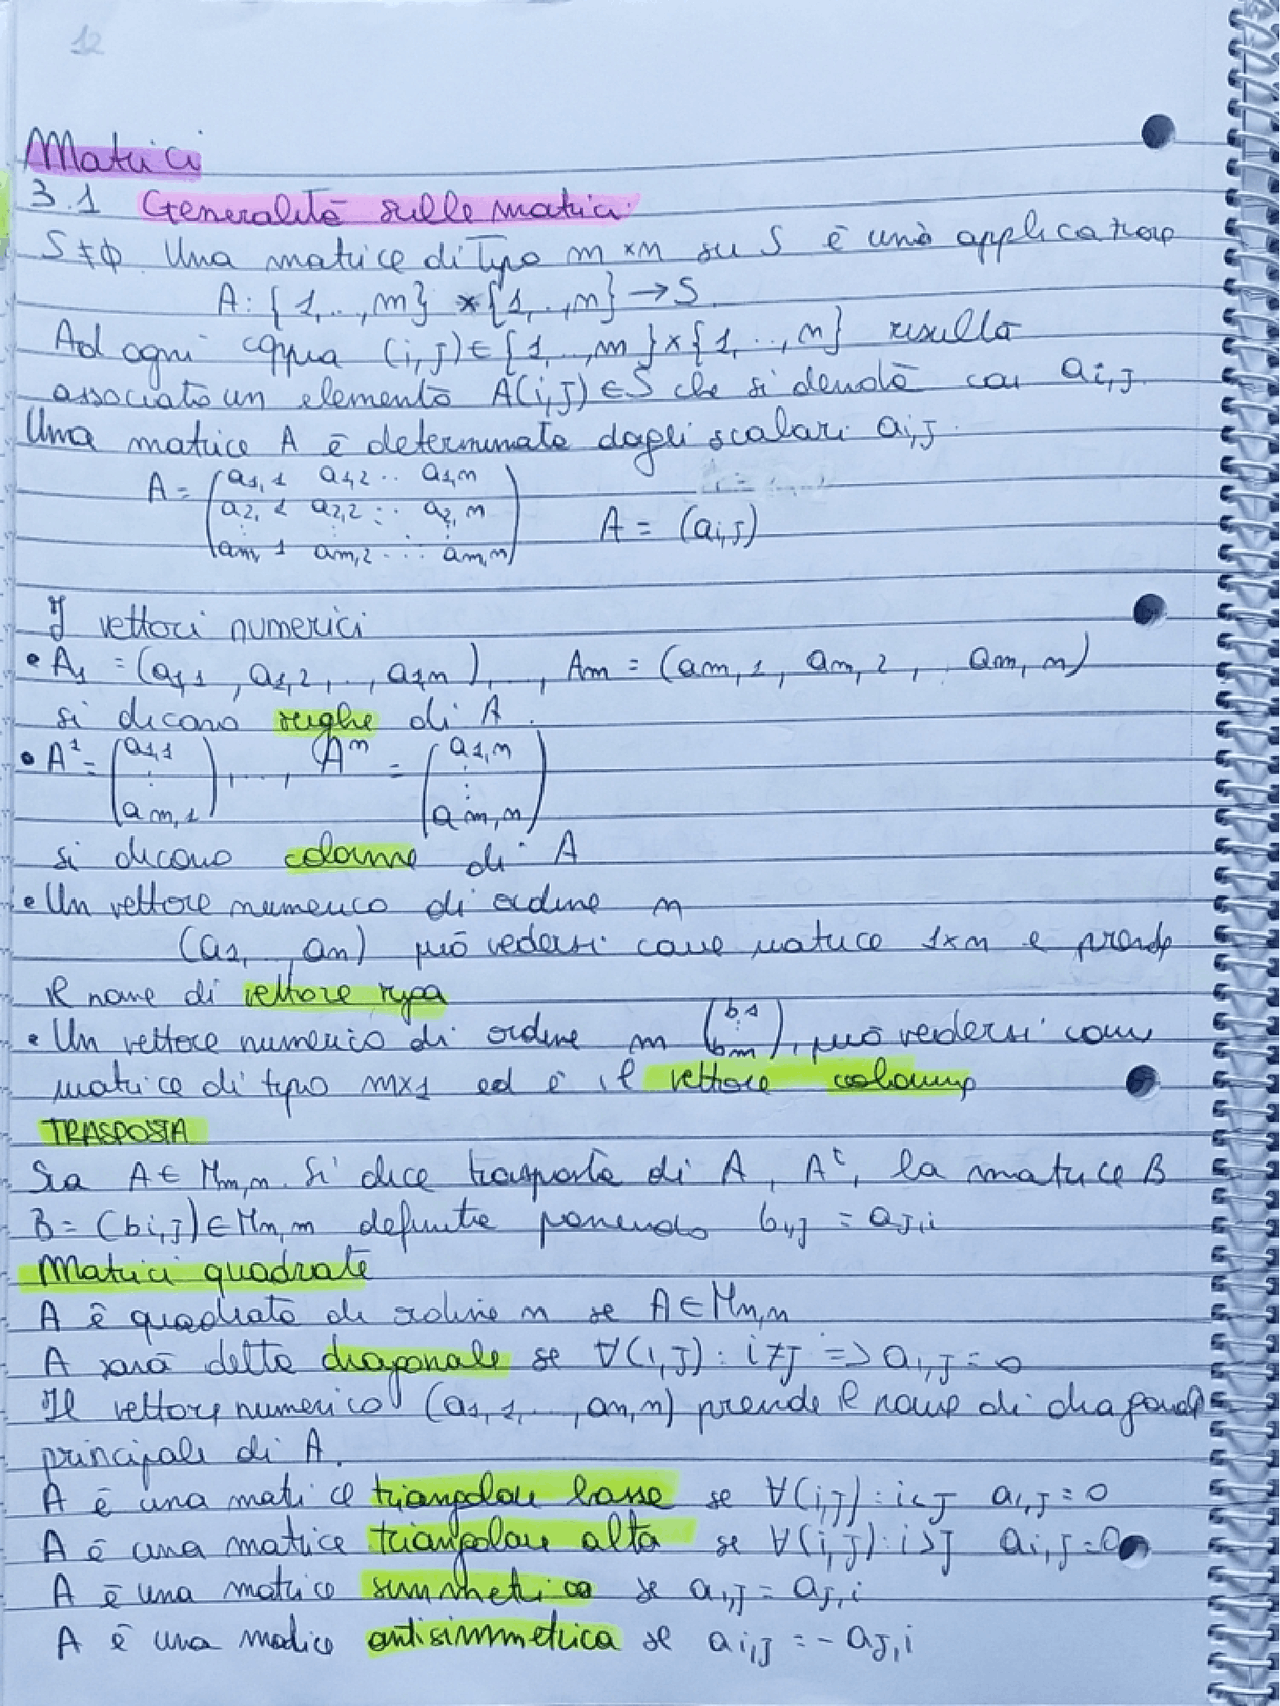 12
Matrici
3.1 Generalità sulle matrici
S≠∅. Una matrice di tipo m×n su S è una applicazione
A: {1,..,m} × {1,..,n} → S.
Ad ogni coppia (i,j) ∈ {1,..,m} × {1,..,n} risulta
associato un elemento A(i,j) ∈ S che si denota con ai,j.
Una matrice A è determinata dagli scalari ai,j.
A = (a1,1 a1,2 .. a1,n
a2,1 a2,2 .. a2,n
am,1 am,2 ... am,n) A = (ai,j)
I vettori numerici
• A1 = (a1,1, a1,2, .., a1,n), .., Am = (am,1, am,2, .. am,n)
si dicono righe di A.
• A¹ = (a1,1 ⋮ am,1), ..., Aⁿ = (a1,n ⋮ am,n)
si dicono colonne di A
• Un vettore numerico di ordine n
(a1, .., an) può vedersi come matrice 1×n e prende
il nome di vettore riga
• Un vettore numerico di ordine m (b1 ⋮ bm), può vedersi come
matrice di tipo m×1 ed è il vettore colonna
TRASPOSTA
Sia A ∈ Mm,n. Si dice trasposta di A, Aᵗ, la matrice B
B = (bi,j) ∈ Mn,m definita ponendo bi,j = aj,i
Matrici quadrate
A è quadrata di ordine n se A ∈ Mn,n
A sarà detta diagonale se ∀(i,j): i≠j => ai,j = 0
Il vettore numerico (a1,1, .., an,n) prende il nome di diagonale
principale di A.
A è una matrice triangolare bassa se ∀(i,j): i<j ai,j = 0
A è una matrice triangolare alta se ∀(i,j): i>j ai,j = 0
A è una matrice simmetrica se ai,j = aj,i
A è una matrice antisimmetrica se ai,j = - aj,i